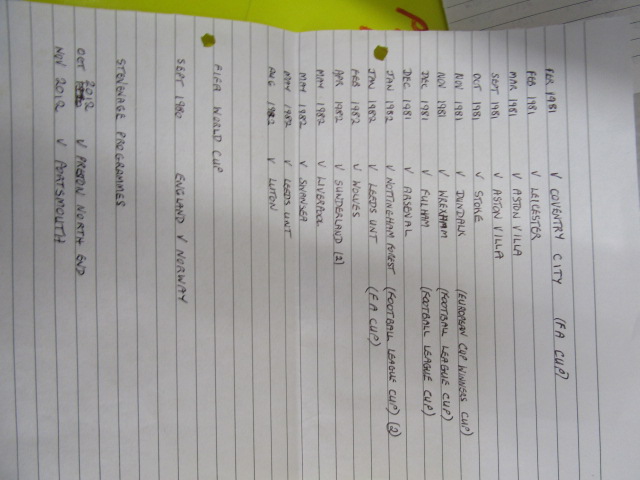 FEB 1981 V COVENTRY CITY (FA CUP)
FEB 1981 V LEICESTER
MAR 1981 V ASTON VILLA
SEPT 1981 V ASTON VILLA
OCT 1981 V STOKE
NOV 1981 V DUNDALK (EUROPEAN CUP WINNERS CUP)
NOV 1981 V WREXHAM (FOOTBALL LEAGUE CUP)
DEC 1981 V FULHAM (FOOTBALL LEAGUE CUP)
DEC 1981 V ARSENAL
JAN 1982 V NOTTINGHAM FOREST (FOOTBALL LEAGUE CUP) (2)
JAN 1982 V LEEDS UNT (FA CUP)
FEB 1982 V WOLVES
APR 1982 V SUNDERLAND (2)
MAY 1982 V LIVERPOOL
MAY 1982 V SWANSEA
MAY 1982 V LEEDS UNT
AUG 1982 V LUTON
FIFA WORLD CUP
SEPT 1980 ENGLAND V NORWAY
STEVENAGE PROGRAMMES
OCT 2012 V PRESTON NORTH END
NOV 2012 V PORTSMOUTH